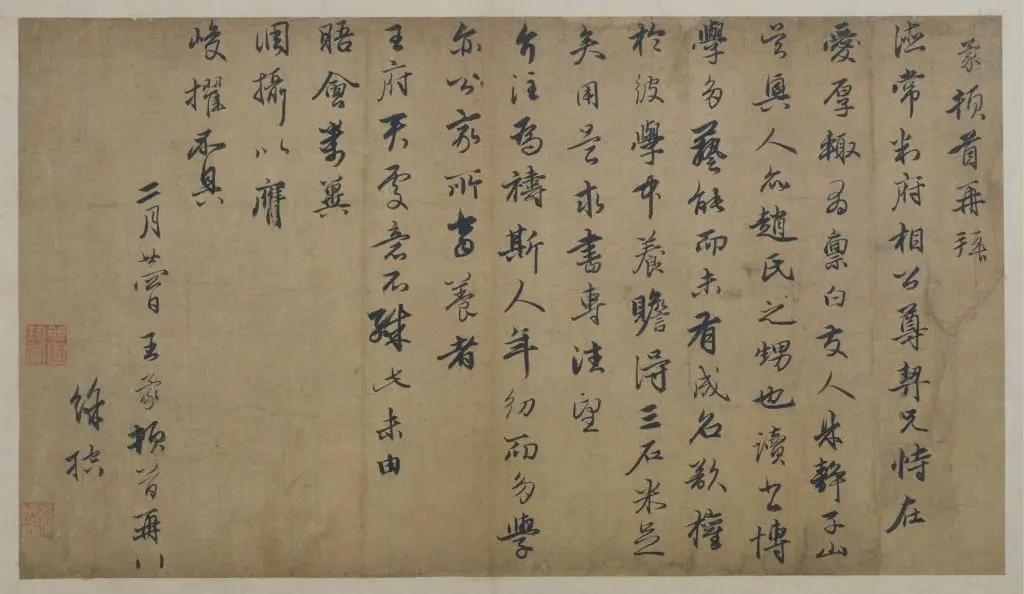 蒙頓首再拜
德常判府相公尊契兄恃在
愛厚輒為稟白友人朱靜子山
吳興人亦趙氏之甥也讀書博
學多藝能而未有成名欲權
於彼學中養贍得三石米足
矣用是求書專注望
介注為禱斯人年幼而多學
亦公家所當養者
王府天雯意不殊此未由
晤會萬冀
調攝以膺
峻擢不具
二月廿四日王蒙頓首再拜